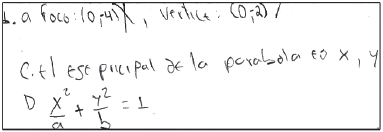 b. a foco: (0,-4) X, vertice: (0,-2) /
C. El eje pricipal de la parabola es x, y
D \frac{x^2}{a} + \frac{y^2}{b} = 1